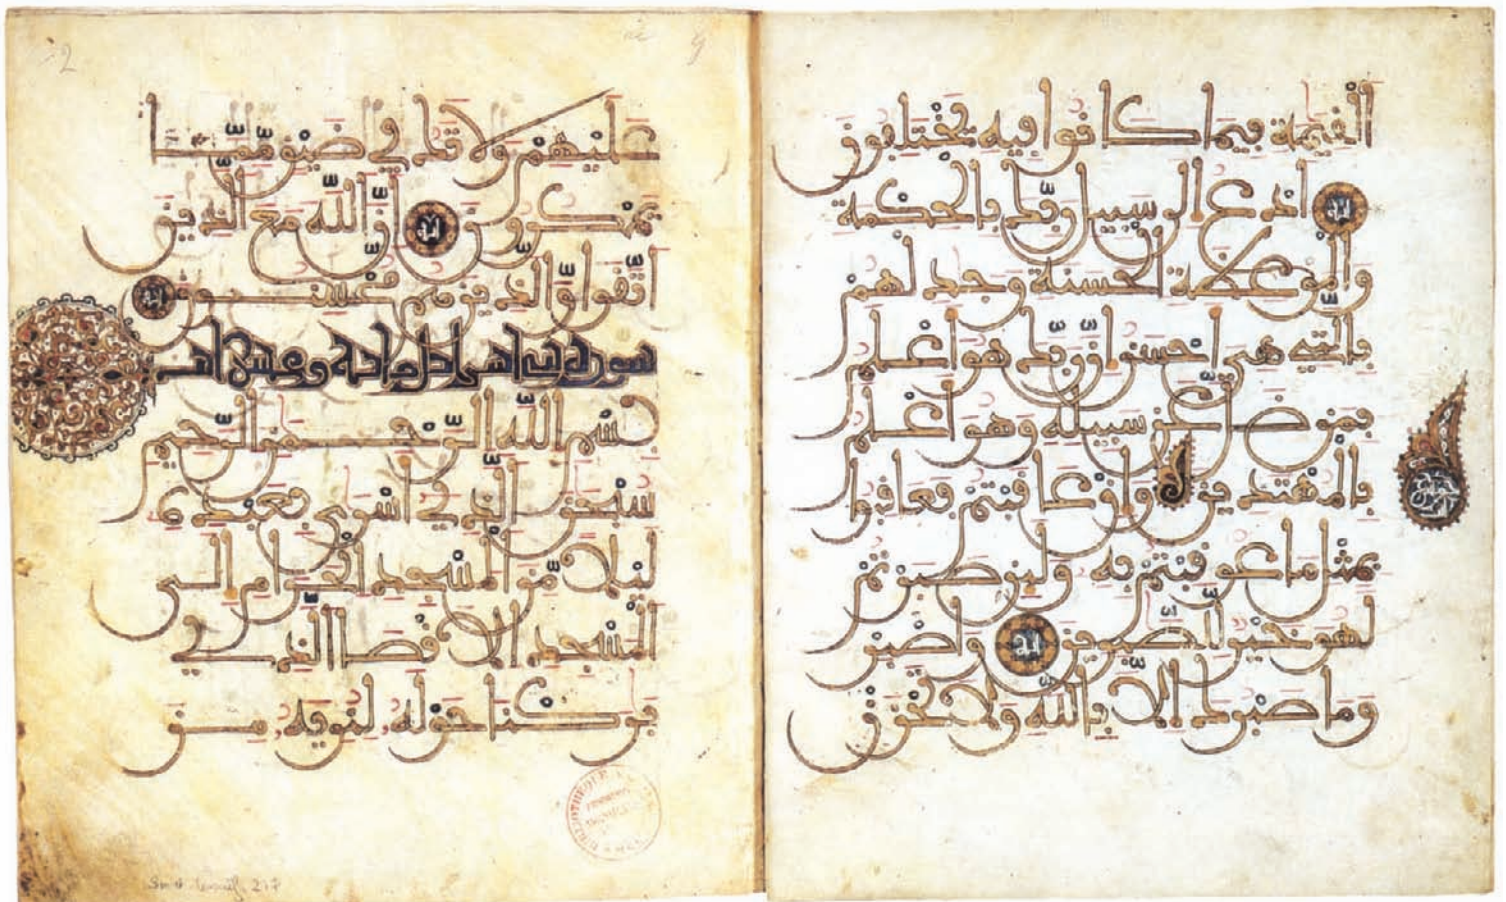 القيمة فيما كانوا فيه يختلفون
ادع الى سبيل ربك بالحكمة
والموعظة الحسنة وجدلهم
بالتي هي احسن ان ربك هو اعلم
بمن ضل عن سبيله وهو اعلم
بالمهتدين وان عاقبتم فعاقبوا
بمثل ما عوقبتم به ولين صبرتم
لهو خير للصبرين واصبر
وما صبرك الا بالله ولا تحزن
عليهم ولا تك في ضيق مما
يمكرون ان الله مع الذين
اتقوا والذين هم محسنون
سورة بني اسراءيل ماية وعشر
بسم الله الرحمن الرحيم
سبحن الذي اسرى بعبده
ليلا من المسجد الحرام الى
المسجد الاقصا الذي
بركنا حوله لنريه من
BIBLIOTHEQUE
217